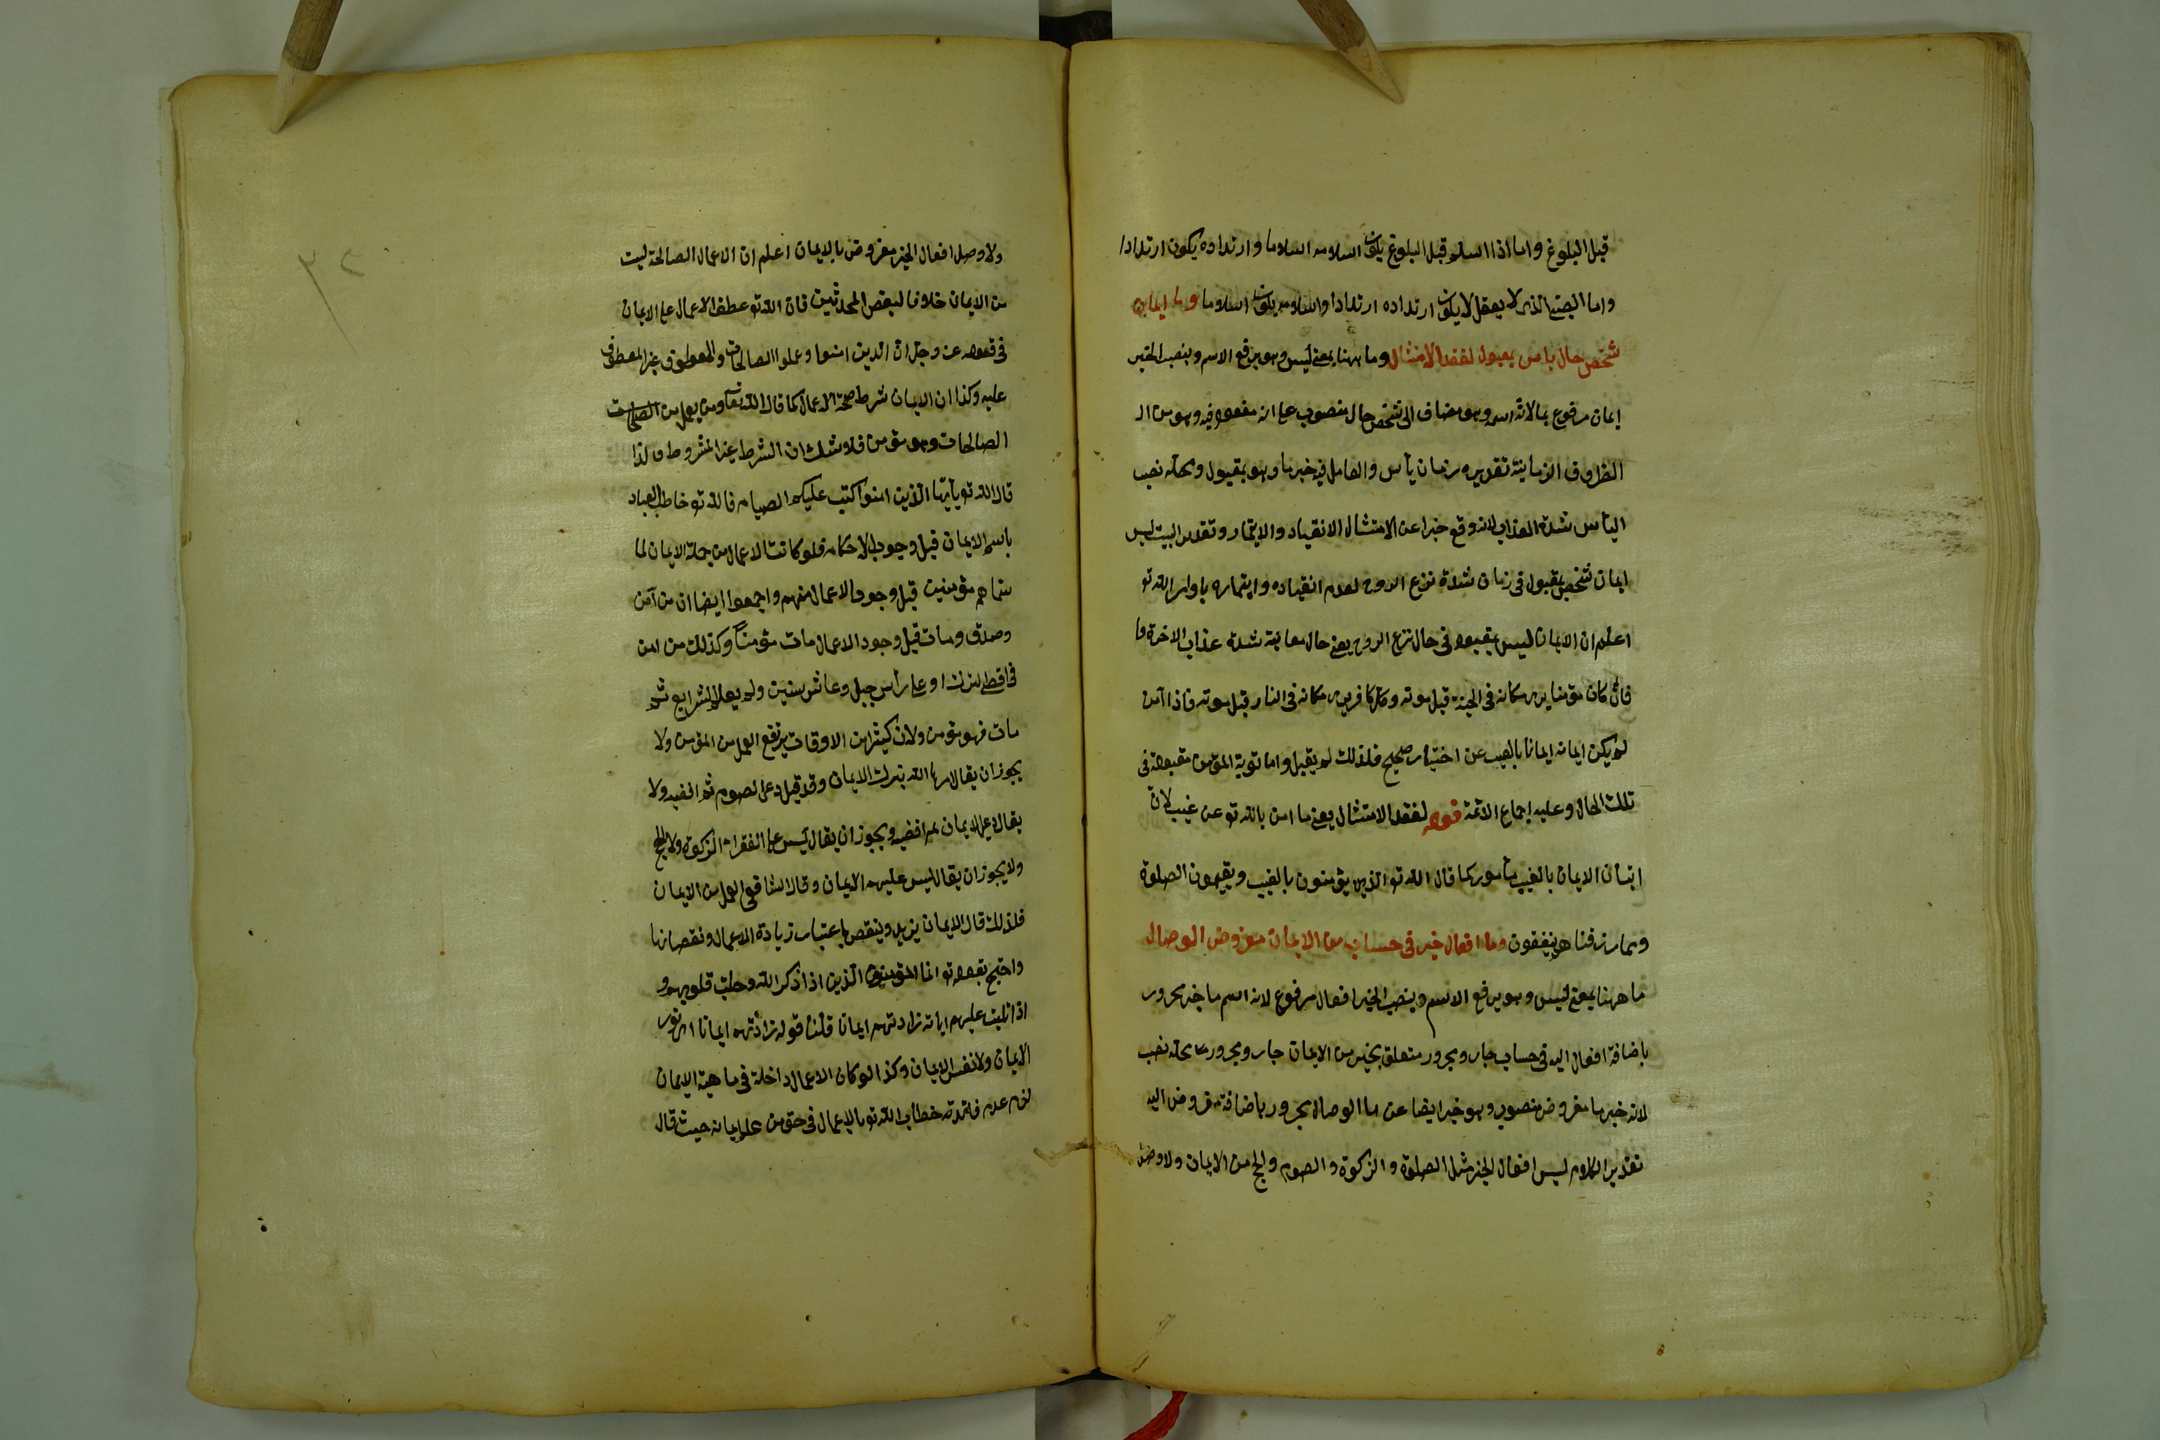 قبل البلوغ واما اذا اسلم قبل البلوغ يكون اسلامه اسلاما وارتداده يكون ارتدادا
واما الصبي الذي لا يعقل لا يكون ارتداده ارتدادا واسلامه يكون اسلاما وما ايمان
شخص حال ياس بمقبول لفقد الامتثال وما ههنا بمعنى ليس وهو يرفع الاسم وينصب الخبر
إيمان مرفوع بما لانه اسمه وهو مضاف الى شخص حال منصوب على انه مفعول فيه وهو من الـ
الظروف الزمانية تقديره زمان يأس والعامل فيه خبر ما وهو بمقبول ومحله نصب
اليأس شدة العذاب لانه وقع خبرا عن الامتثال الانقياد والايتمار وتقدير البيت ليس
ايمان شخص بمقبول في زمان شدة نزع الروح لعدم انقياده وايتماره باوامر الله تو
اعلم ان الايمان ليس بمقبول في حال نزع الروح يعنى حال معاينة شدة عذاب الاخرة وا
فان كان مؤمنا يرى مكانه في الجنة قبل موته وكل كافر يرى مكانه في النار قبل موته فاذا آمن
لم يكن ايمانه ايمانا بالغيب عن اختيار صحيح فلذلك لم يقبل واما توبة المؤمن مقبولة في
تلك الحال وعليه اجماع الائمة قوله لفقد الامتثال يعنى ما امن بالله تو عن غيب لان
اتيان الايمان بالغيب مأمور كما قال الله تو الذين يؤمنون بالغيب ويقيمون الصلوة
ومما رزقنا هم ينفقون وما افعال خير في حساب من الايمان مفروض الوصال
ما ههنا بمعنى ليس وهو يرفع الاسم وينصب الخبر افعال مرفوع لانه اسم ما خير مجرور
باضافة افعال اليه في حساب جار ومجرور متعلق بخير من الايمان جار ومجرور محله نصب
لانه خبر ما مفروض منصوب وهو خبر ايضا عن ما الوصال مجرور باضافة مفروض اليه
تقدير الكلام ليس افعال الخير مثل الصلوة والزكوة والصوم والحج من الايمان ولا وصل
ولا وصل افعال الخير مفروض بالايمان اعلم ان الاعمال الصالحة ليست
من الايمان خلافا لبعض المحدثين فان الله تو عطف الاعمال على الايمان
في قوله عز وجل ان الذين امنوا وعملوا الصالحات والمعطوف غير المعطوف
عليه وكذا ان الايمان شرط صحة الاعمال كما قال الله تعا ومن يعمل من الصالحات
الصالحات وهو مؤمن فلا شك ان الشرط غير المشروط ولذا
قال الله تو يأيها الذين امنوا كتب عليكم الصيام فالله تو خاطب العباد
باسم الايمان قبل وجود الاحكام فلو كانت الاعمال من جملة الايمان لما
سماهم مؤمنين قبل وجود الاعمال منهم واجمعوا ايضا ان من آمن
وصدق ومات قبل وجود الاعمال مات مؤمناً وكذلك من امن
في اقطى او على رأس جبل وعاش سنين ولم يعلم الشرايع ثم
مات فهو مؤمن ولان كثيرا من الاوقات يرتفع العمل من المؤمن ولا
يجوز ان يقال امر الله بترك الايمان وقد قيل دعى الصوم ثم اقضيه ولا
يقال دعى الايمان ثم اقضيه ويجوز ان يقال ليس على الفقراء الزكوة ولا الحج
ولا يجوز ان يقال ليس عليهم الايمان وقال الشافعى العمل من الايمان
فلذلك قال الايمان يزيد وينقص باعتبار زيادة الاعمال ونقصانها
واحتج بقوله تو انما المؤمنون الذين اذا ذكر الله وجلت قلوبهم و
اذا تليت عليهم اياته زادتهم ايمانا قلنا قوله زادتهم ايمانا اى نور
الايمان ولا نفس الايمان وكذا لو كان الاعمال داخلة في ماهية الايمان
لزم عدم فائدة خطاب الله تو بالاعمال في حق من علم ايمانه حيث قال